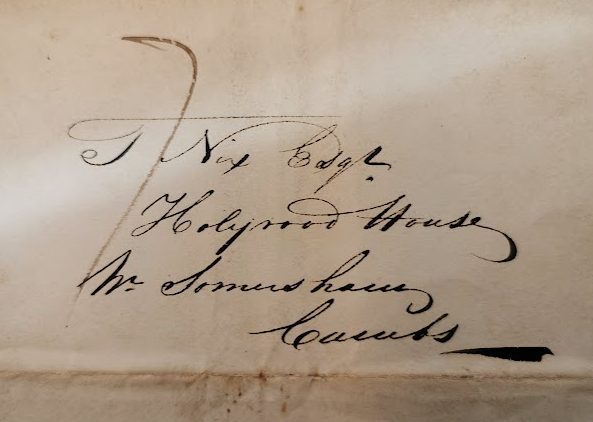 T Nix Esqr.
Holyrood House
Nr Somersham
Cambs